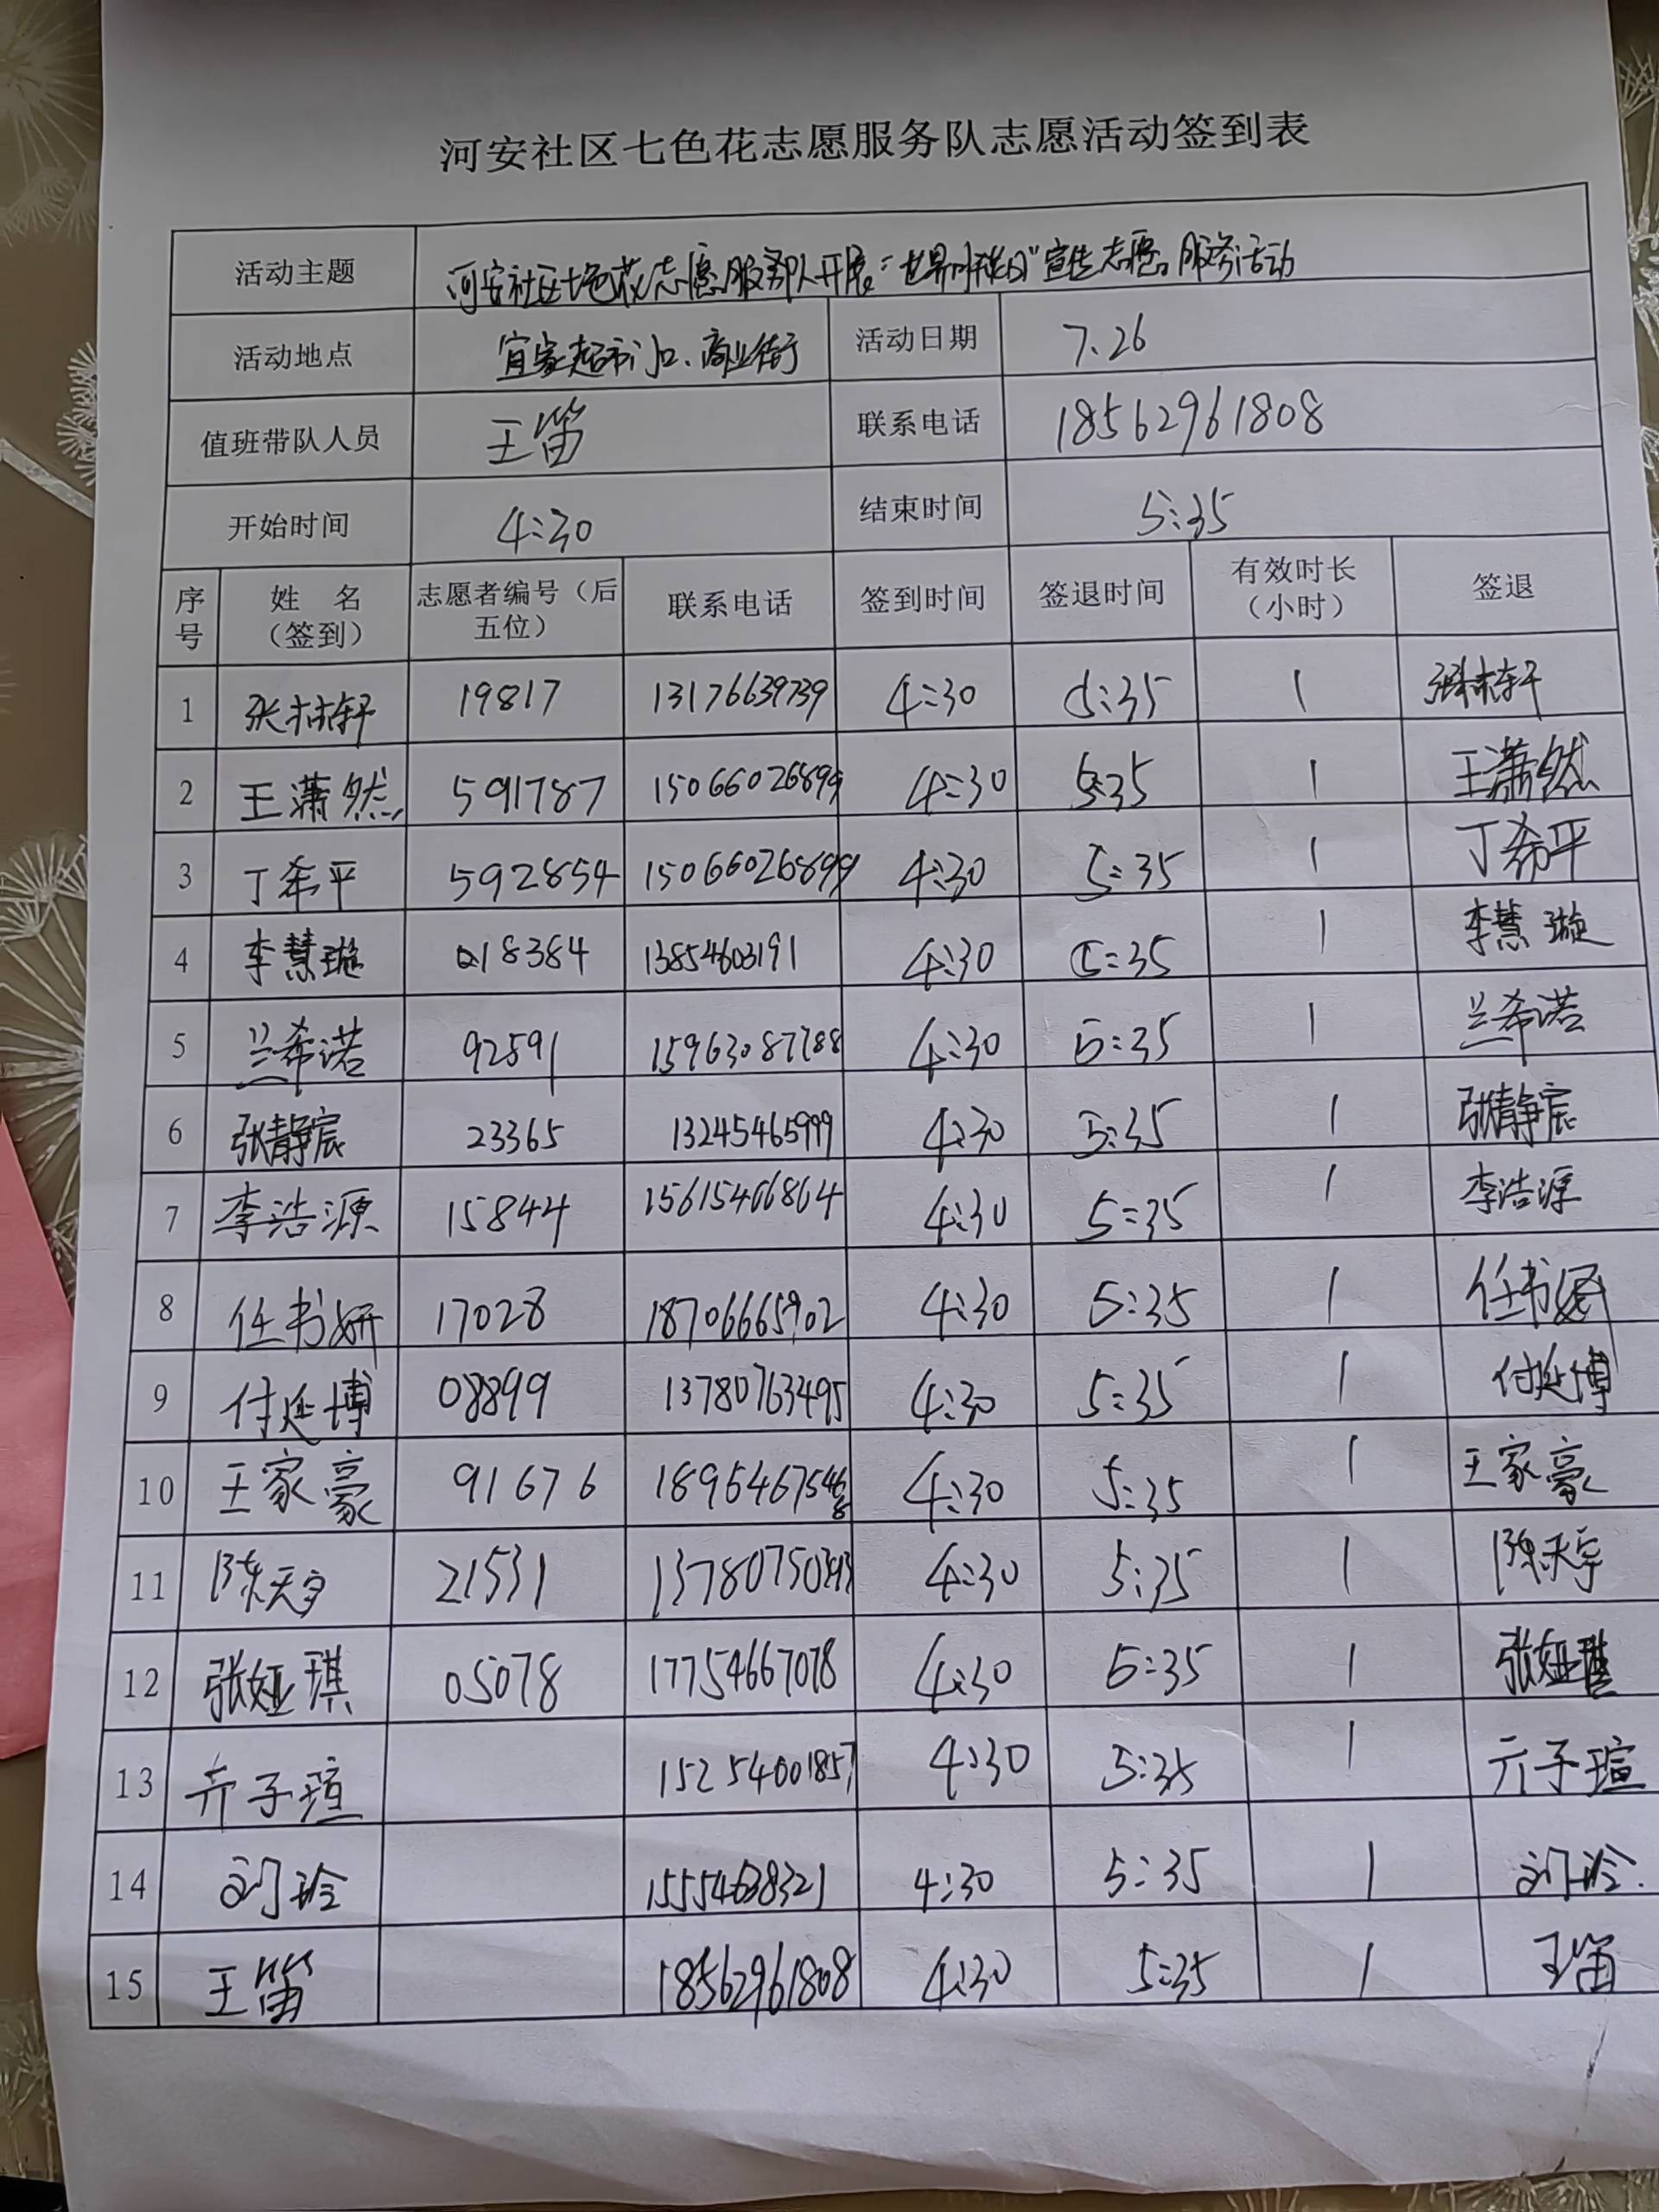 河安社区七色花志愿服务队志愿活动签到表
活动主题 河安社区七色花志愿服务队开展“世界肝炎日”宣传志愿服务活动
活动地点 宜家超市门口、商业街 活动日期 7.26
值班带队人员 王笛 联系电话 18562961808
开始时间 4:30 结束时间 5:35
序号 姓 名（签到） 志愿者编号（后五位） 联系电话 签到时间 签退时间 有效时长（小时） 签退
1 张栋轩 19817 13176639739 4:30 5:35 1 张栋轩
2 王潇然 591787 15066026899 4:30 5:35 1 王潇然
3 丁希平 592854 15066026899 4:30 5:35 1 丁希平
4 李慧璇 018384 13854603191 4:30 5:35 1 李慧璇
5 兰希诺 92591 15963087788 4:30 5:35 1 兰希诺
6 张静宸 23365 13245465999 4:30 5:35 1 张静宸
7 李浩源 15844 15615466864 4:30 5:35 1 李浩源
8 任书妍 17028 18706665902 4:30 5:35 1 任书妍
9 付延博 08899 13780763495 4:30 5:35 1 付延博
10 王家豪 91676 18954675468 4:30 5:35 1 王家豪
11 陈天宇 21531 4:30 5:35 1 陈天宇
12 张娅琪 05078 17754667078 4:30 5:35 1 张娅琪
13 亓子瑄 15254001857 4:30 5:35 1 亓子瑄
14 刘玲 15554638321 4:30 5:35 1 刘玲.
15 王笛 18562961808 4:30 5:35 1 王笛